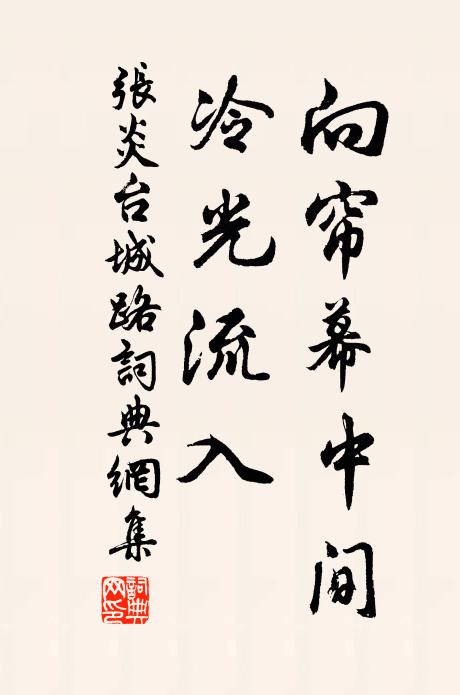 向帘幕中间
冷光流入
張炎台城路詞典網集
詞典网印